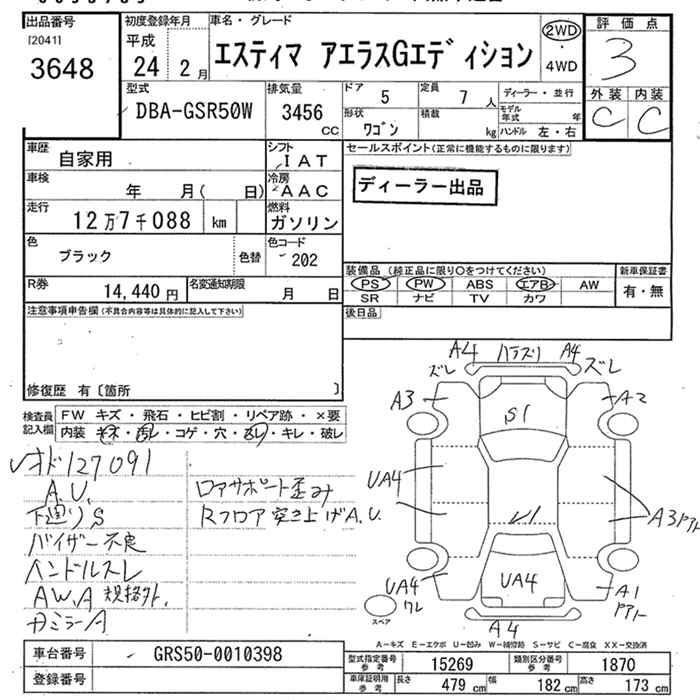 出品番号
[2041]
3648
初度登録年月
平成
24年 2月
車名・グレード
エスティマ アエラスGエディション
2WD
・
4WD
評価点
3
外装 内装
C C
型式
DBA-GSR50W
排気量
3456
CC
ドア 5
定員 7人
形状 ワゴン
積載 kg
ディーラー・並行
モデル年式 年
ハンドル 左・右
車歴
自家用
シフト
IAT
セールスポイント(正常に機能するものに限ります)
ディーラー出品
車検
年 月( 日)
冷房
AAC
走行
12万7千088 km
燃料
ガソリン
色
ブラック
色替
色コード
202
装備品 (純正品に限り○をつけてください)
PS PW ABS エアB AW
SR ナビ TV カワ
新車保証書
有・無
R券
14,440円
名変通知期限
月 日
後日品
注意事項申告欄(不具合内容等は具体的に記入して下さい)
修復歴 有〔箇所 〕
検査員記入欄
FW キズ・飛石・ヒビ割・リペア跡・×要
内装 キズ・汚レ・コゲ・穴・ムレ・キレ・破レ
オド127091
A.U.
下廻りS
バイザー不良
ハンドルスレ
AW.A 規格外.
カミラーA
ロアサポート歪み
Rフロア突き上げA.U.
A4 ハラズリ A4
ズレ ズレ
A3 A2
S1
UA4
A3アト
UA4
ワレ
UA4
A1
アト
A4
スペア
A-キズ E-エクボ U-凹み W-補修跡 S-サビ C-腐食 XX-交換済
車台番号
GRS50-0010398
型式指定番号 参考
15269
類別区分番号 参考
1870
登録番号
車庫証明用 参考
長さ 479cm 幅 182cm 高さ 173cm